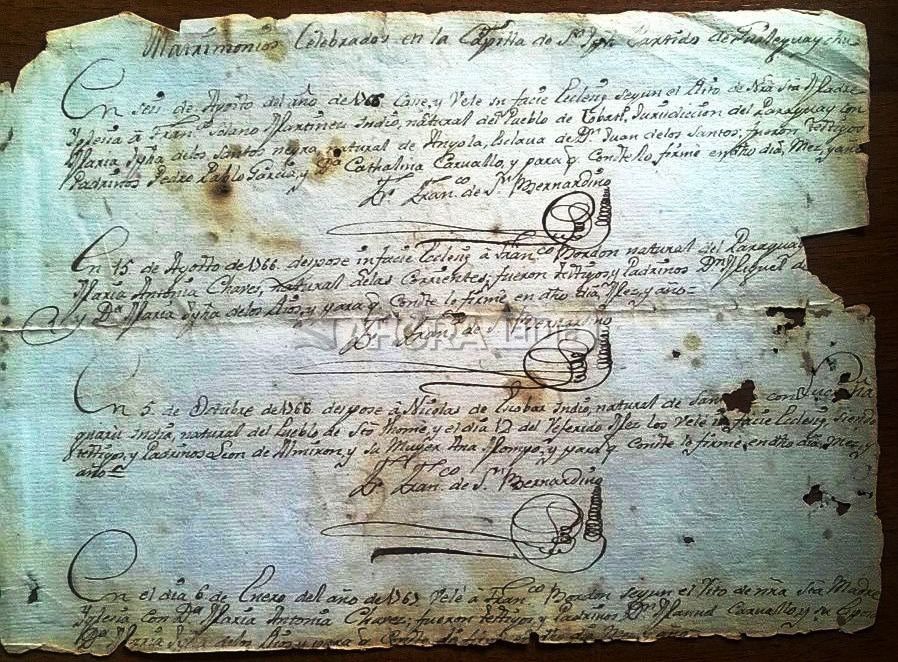 Matrimonios Celebrados en la Capilla de Sn Joph Partido de Gualeguaychu
En seis de Agosto del año de 1766 Case, y Vele in facie Eclesiȩ segun el Rito de Nra Sta Madre
Yglesia à Franco Solano Martinez Indio, natural del Pueblo de Tobati, Jurisdicion del Paraguay con
Maria Ygna de los Santos negra, natural de Angola, Esclava de Dn Juan de los Santos; fueron testigos
Padrinos Pedro Pablo Garcia, y Da Cathalina Carvallo, y para q Conste lo firmè en dho dia, Mez, y año
Fr. Franco de Sn Bernardino
En 15 de Agosto de 1766 despose in facie Eclesiȩ à Franco Bordon natural del Paraguay
Maria Antonia Chaves, natural de las Corrientes, fueron testigos, y Padrinos Dn Miguel
y Da Maria Ygna de los Rios, y para q Conste lo firmè en dho dia Mez, y año=
Fr. Franco de Sn Bernardino
En 5 de Octubre de 1766 despose à Nicolas de Escobar Indio, natural de San con
guarù India, natural del Pueblo de Sto Thome, y el dia 12 del referido Mez los Velè in facie Eclesiȩ, siendo
testigos, y Padrinos Leon de Almiron, y su Muger Ana, y para q Conste lo firmè, en dho dia, mez, y
año=
Fr. Franco de Sn Bernardino
En el dia 6 de Enero del año de 1767 Velè à Franco Bordon segun el Rito de nra Sta Madre
Yglesia con Da Maria Antonia Chavez; fueron testigos y Padrinos Dn Manuel Carvallo, y su Espo
Da Maria Ygna de los Rios, y para q Conste lo firmè